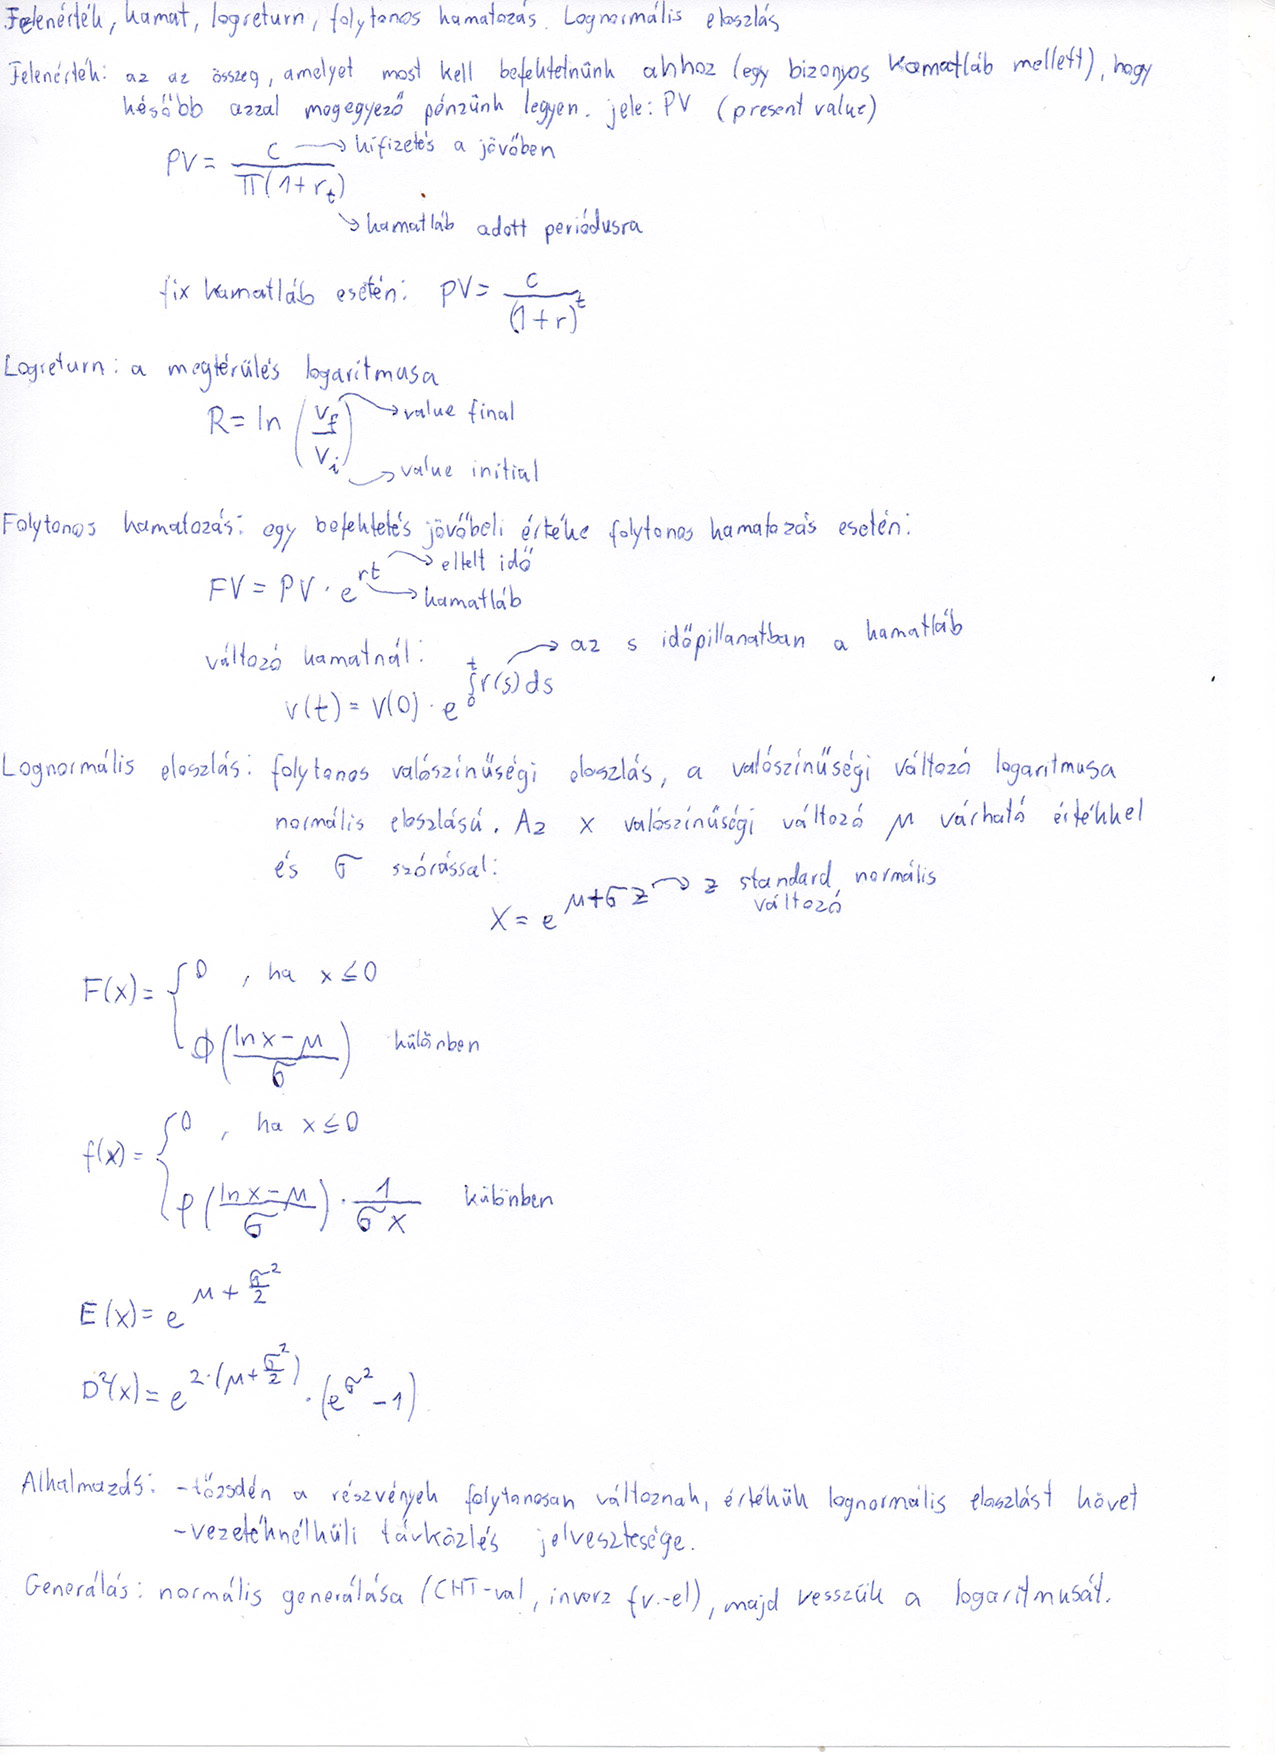 Jelenérték, kamat, logreturn, folytonos kamatozás. Lognormális eloszlás
Jelenérték: az az összeg, amelyet most kell befektetnünk ahhoz (egy bizonyos kamatláb mellett), hogy
később azzal megegyező pénzünk legyen. jele: PV (present value)
PV = C / Π(1+r_t)
→ kifizetés a jövőben
→ kamatláb adott periódusra
fix kamatláb esetén: PV = C / (1+r)^t
Logreturn: a megtérülés logaritmusa
R = ln (V_f / V_i)
→ value final
→ value initial
Folytonos kamatozás: egy befektetés jövőbeli értéke folytonos kamatozás esetén:
FV = PV · e^{rt}
→ eltelt idő
→ kamatláb
változó kamatnál:
→ az s időpillanatban a kamatláb
V(t) = V(0) · e^{∫_0^t r(s)ds}
Lognormális eloszlás: folytonos valószínűségi eloszlás, a valószínűségi változó logaritmusa
normális eloszlású. Az X valószínűségi változó μ várható értékkel
és σ szórással:
X = e^{μ+σz} → z standard normális
változó
F(x) = { 0 , ha x ≤ 0
Φ((ln x − μ) / σ) különben
f(x) = { 0 , ha x ≤ 0
φ((ln x − μ) / σ) · 1 / (σx) különben
E(x) = e^{μ + σ²/2}
D²(x) = e^{2·(μ+σ²/2)} · (e^{σ²} − 1)
Alkalmazás: - tőzsdén a részvények folytonosan változnak, értékük lognormális eloszlást követ
- vezetéknélküli távközlés jelvesztesége.
Generálás: normális generálása (CHT-val, inverz fv.-el), majd vesszük a logaritmusát.